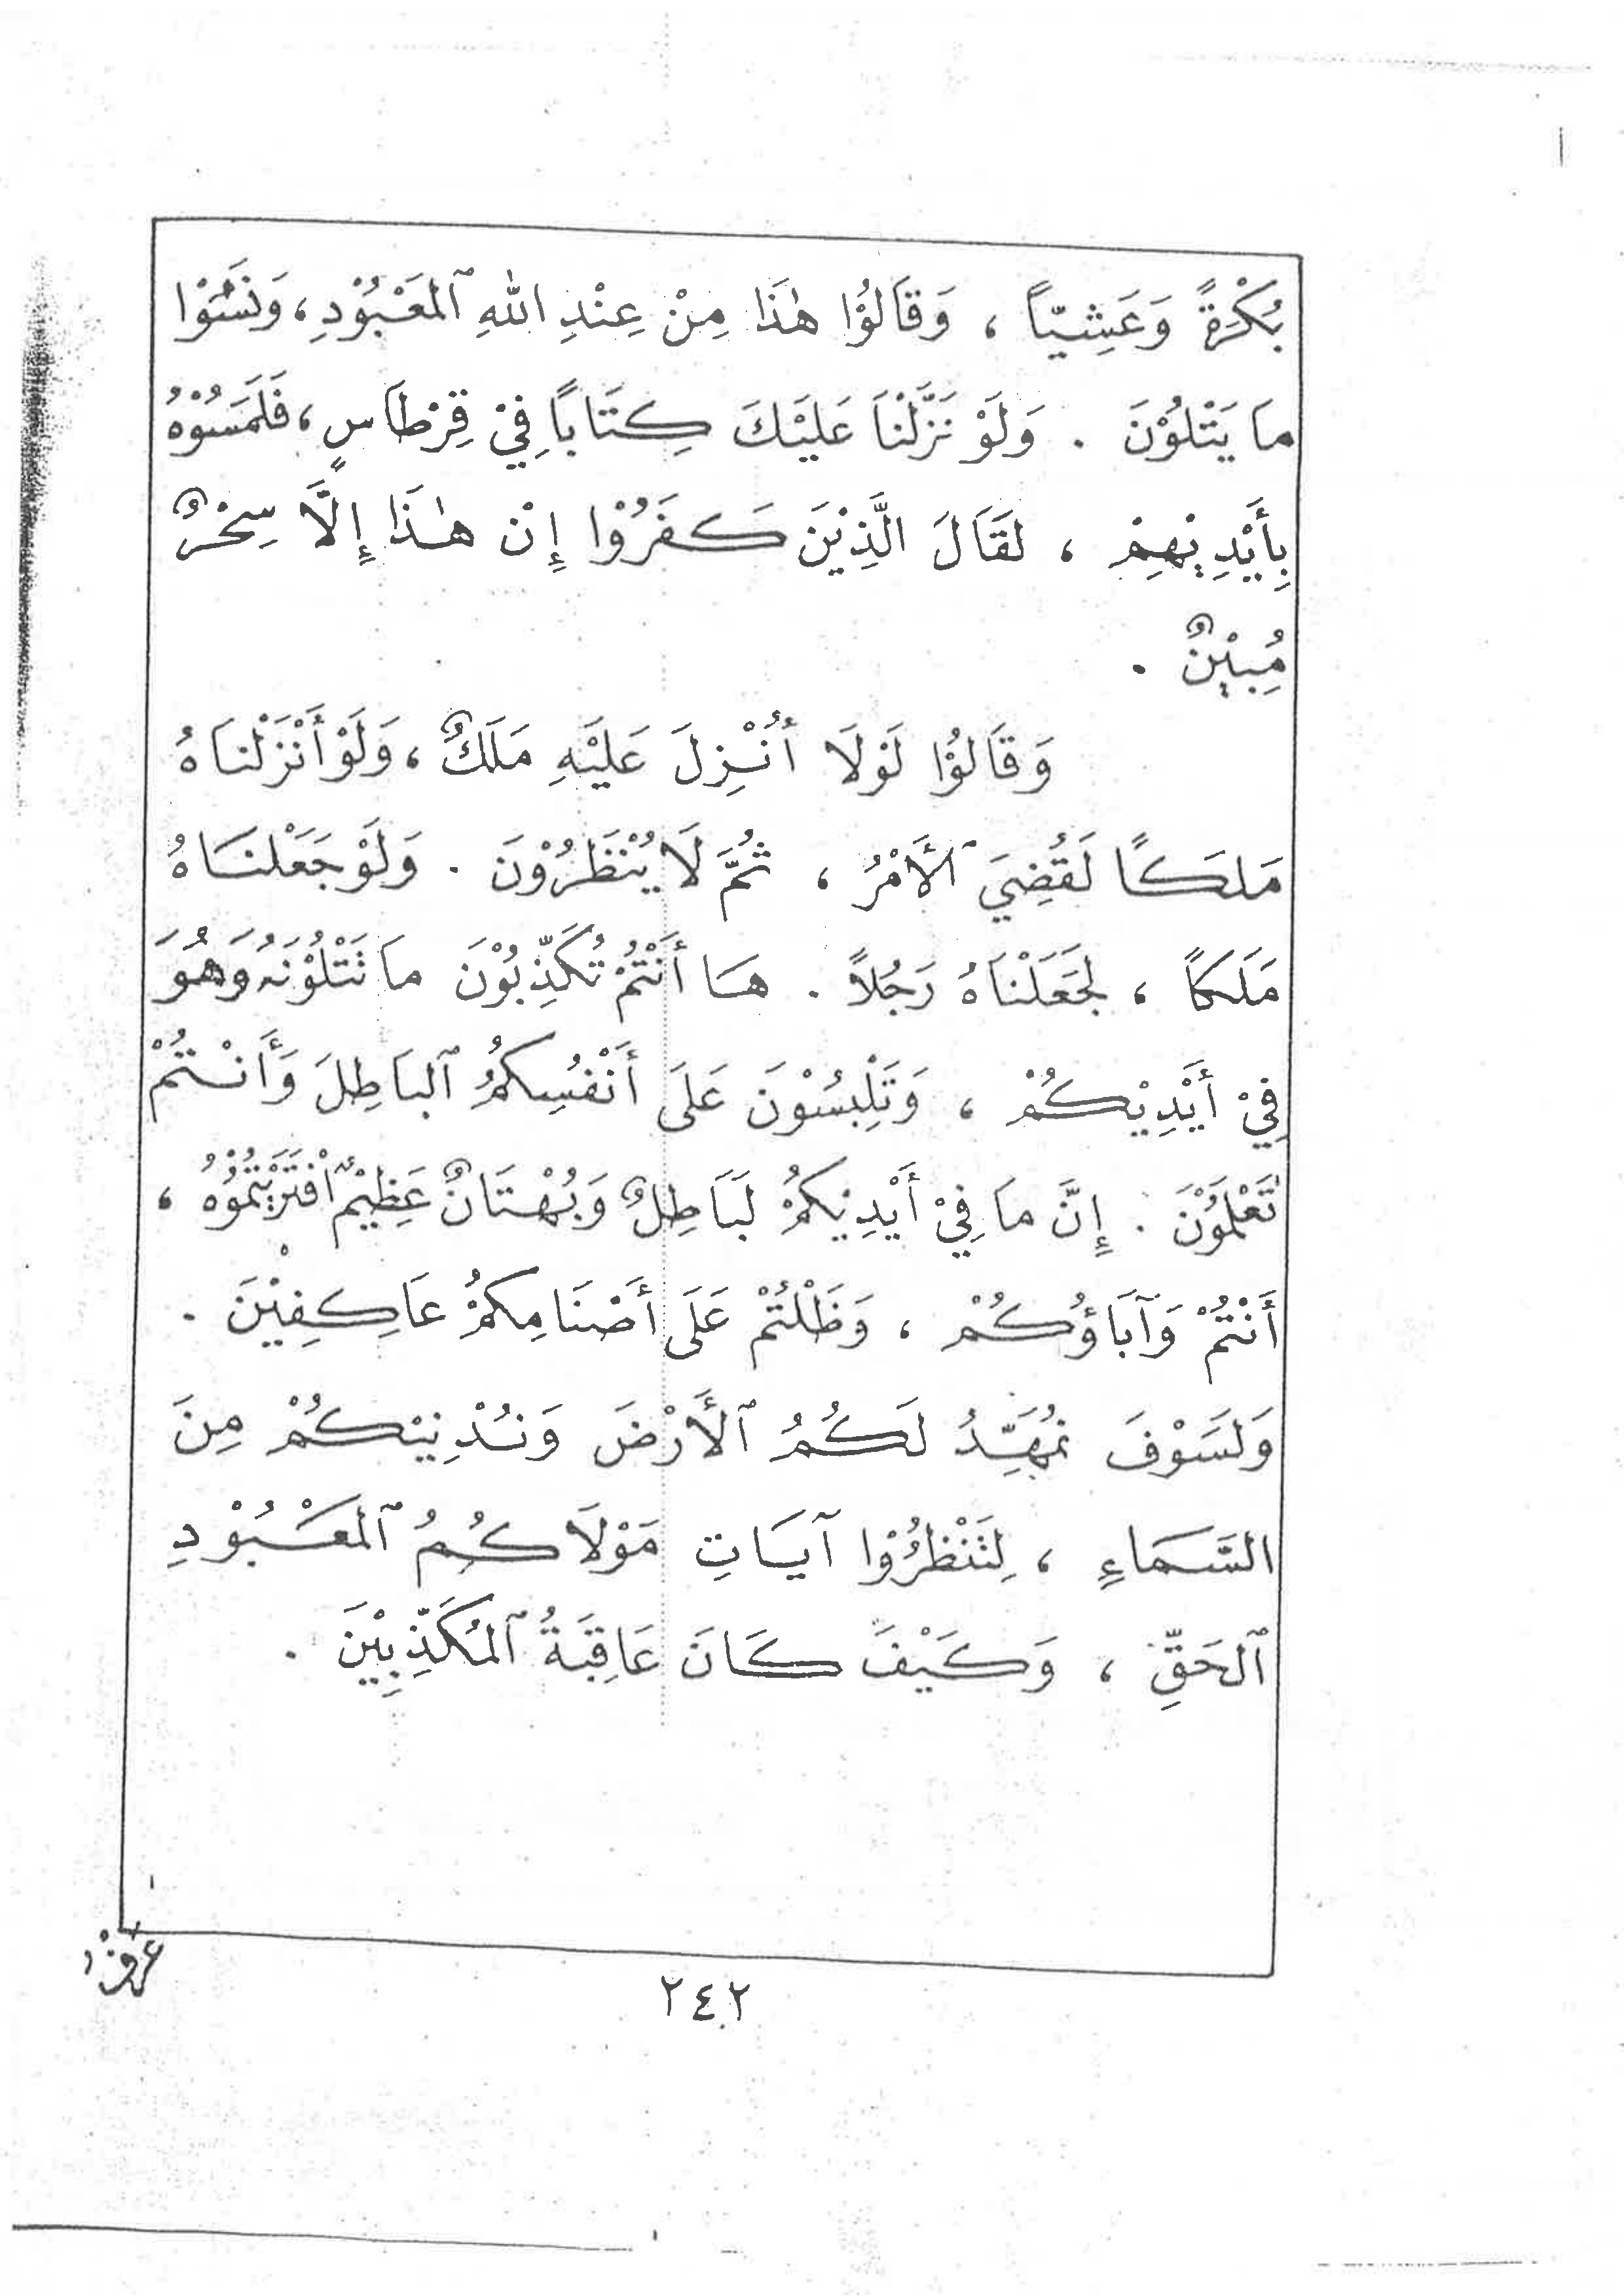 بُكْرَةً وَعَشِيّاً ، وَقَالُوْا هٰذَا مِنْ عِنْدِ اللهِ ٱلمَعْبُوْدِ ، وَنَسَوْا
مَا يَتْلُوْنَ . وَلَوْ نَزَّلْنَا عَلَيْكَ كِتَاباً فِيْ قِرْطَاسٍ ، فَلَمَسُوْهُ
بِأَيْدِيْهِمْ ، لَقَالَ الَّذِيْنَ كَفَرُوْا إِنْ هٰذَا إِلَّا سِحْرٌ
مُبِيْنٌ .
وَقَالُوْا لَوْلَا أُنْزِلَ عَلَيْهِ مَلَكٌ ، وَلَوْ أَنْزَلْنَاهُ
مَلَكًا لَقُضِيَ ٱلأَمْرُ ، ثُمَّ لَا يُنْظَرُوْنَ . وَلَوْ جَعَلْنَاهُ
مَلَكاً ، لَجَعَلْنَاهُ رَجُلاً . هَا أَنْتُمْ تُكَذِّبُوْنَ مَا تَتْلُوْنَهُ وَهُوَ
فِيْ أَيْدِيْكُمْ ، وَتَلْبِسُوْنَ عَلَى أَنْفُسِكُمُ ٱلبَاطِلَ وَأَنْتُمْ
تَعْلَمُوْنَ . إِنَّ مَا فِيْ أَيْدِيْكُمْ لَبَاطِلٌ وَبُهْتَانٌ عَظِيْمٌ ٱفْتَرَيْتُمُوْهُ ،
أَنْتُمْ وَآبَاؤُكُمْ ، وَظَلْتُمْ عَلَى أَصْنَامِكُمْ عَاكِفِيْنَ .
وَلَسَوْفَ نُمَهِّدُ لَكُمُ ٱلأَرْضَ وَنُدْنِيْكُمْ مِنَ
السَّمَاءِ ، لِتَنْظُرُوْا آيَاتِ مَوْلَاكُمُ ٱلمَعْبُوْدِ
ٱلحَقِّ ، وَكَيْفَ كَانَ عَاقِبَةُ ٱلمُكَذِّبِيْنَ .
٢٤٢